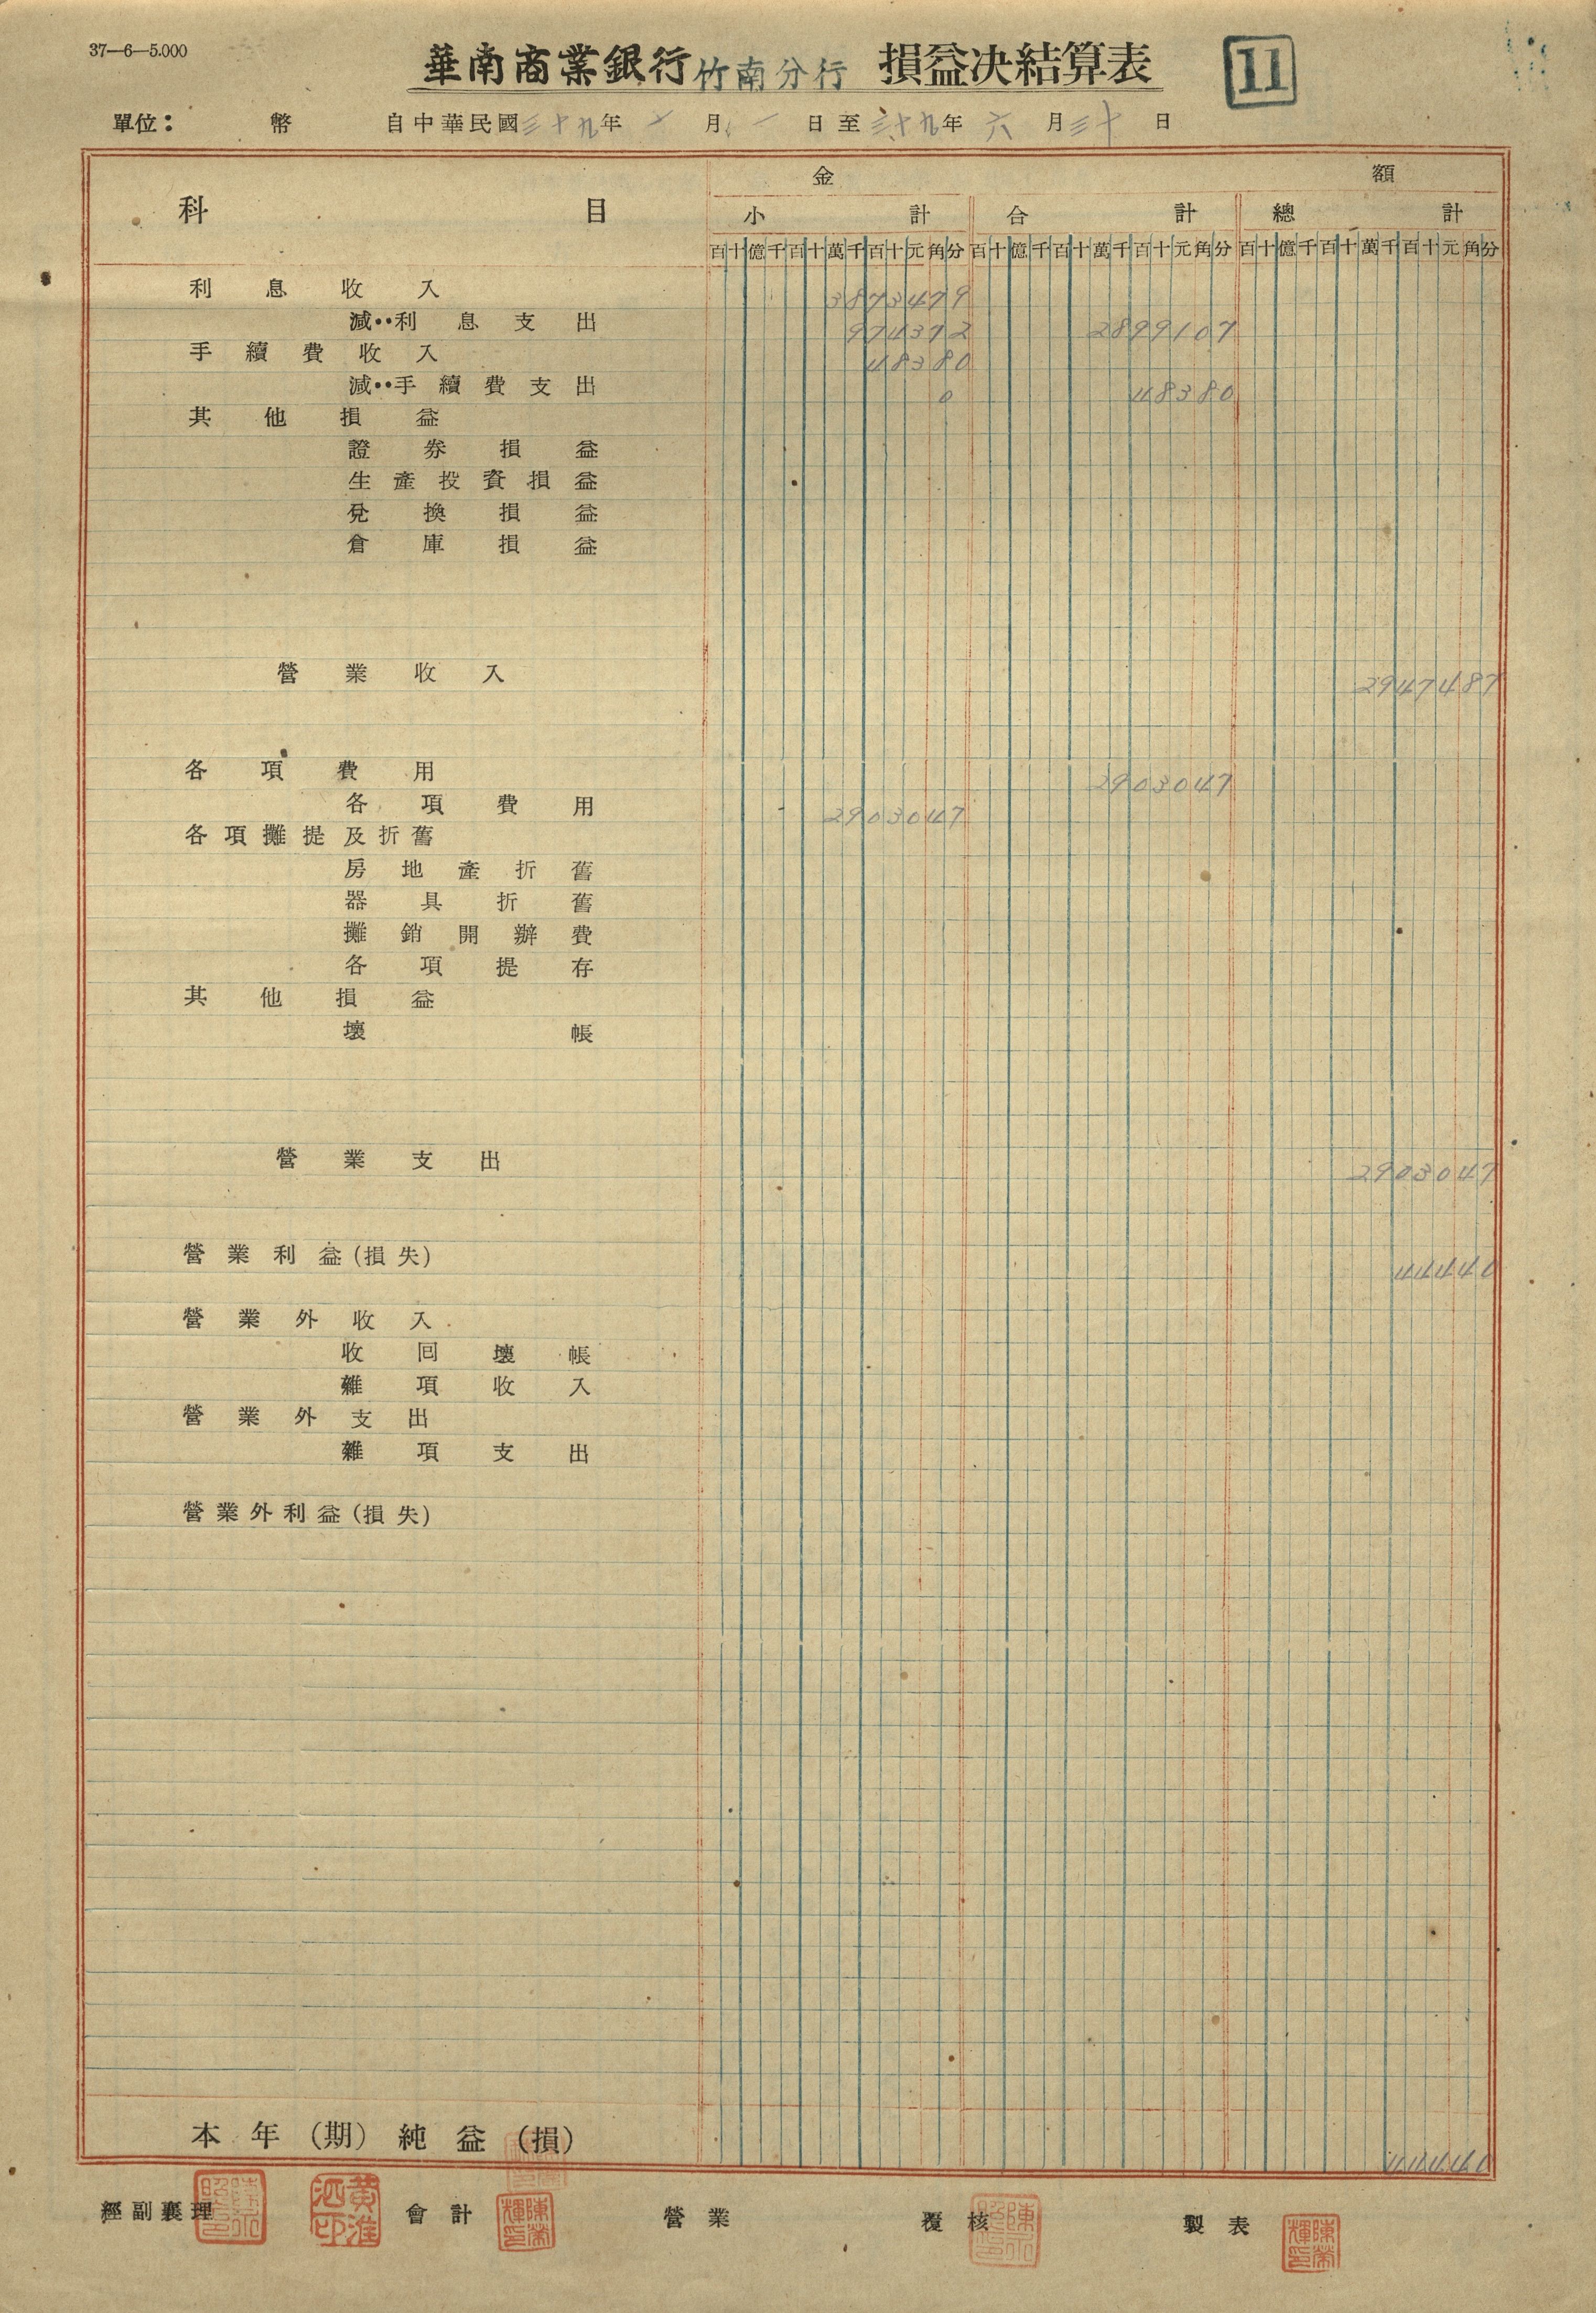 37—6—5.000
華南商業銀行竹南分行 損益決結算表 11
單位： 幣 自中華民國三十九年一月一日至三十九年六月三十日
科目 金額
小計 合計 總計
百十億千百十萬千百十元角分 百十億千百十萬千百十元角分 百十億千百十萬千百十元角分
利息收入 3873479
減：利息支出 974372 2899107
手續費收入 48380
減：手續費支出 0 48380
其他損益
證券損益
生產投資損益
兌換損益
倉庫損益
營業收入 2947487
各項費用 2903047
各項費用 2903047
各項攤提及折舊
房地產折舊
器具折舊
攤銷開辦費
各項提存
其他損益
壞帳
營業支出 2903047
營業利益(損失) 44440
營業外收入
收回壞帳
雜項收入
營業外支出
雜項支出
營業外利益(損失)
本年(期)純益(損) 44440
經副襄理 會計 陳榮輝印 營業 覆核 製表 陳榮輝印